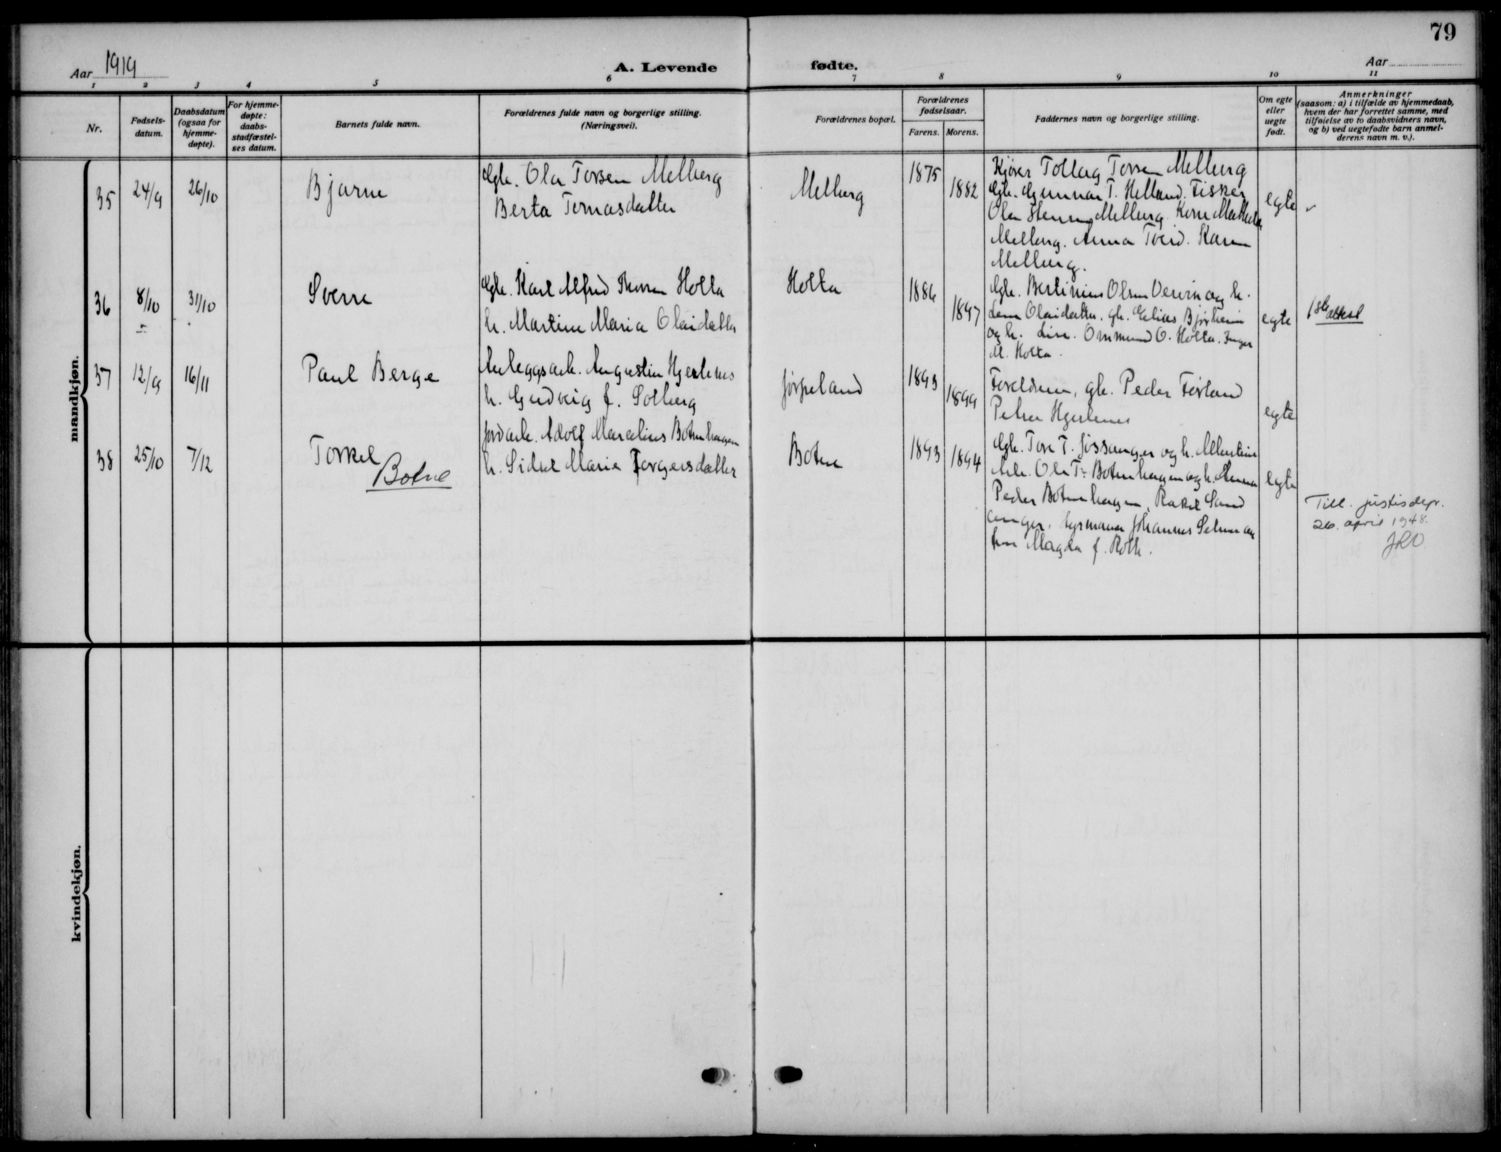 79
Aar 1919
A. Levende
fødte.
Aar
1 2 3 4 5 6 7 8 9 10 11
Nr.
Fødsels-
datum.
Daabsdatum
(ogsaa for
hjemme-
døpte).
For hjemme-
døpte:
daabs-
stadfæstel-
ses datum.
Barnets fulde navn.
Forældrenes fulde navn og borgerlige stilling.
(Næringsvei).
Forældrenes bopæl.
Forældrenes
fødselsaar.
Farens. Morens.
Faddernes navn og borgerlige stilling.
Om egte
eller
uegte
født.
Anmerkninger
(saasom: a) i tilfælde av hjemmedaab,
hvem der har forrettet samme, med
tilføielse av to daabsvidners navn,
og b) ved uegtefødte barn anmel-
derens navn m. v.).
mandkjøn.
35 24/9 26/10 Bjarne
Gbr. Ola Torsen Melberg
Berta Tomasdatter
Melberg
1875
1882
Tollag Torsen Melberg
Gbr. Gunnar T. Helland. Fisker
Ola Melberg.
Melberg. Anna Karen
Melberg.
egte
36 8/10 31/10 Sverre
Gbr. Karl Alfred Holta
h. Martine Maria Olaidatter
Holta
1886
1897
Gbr. Bertinius Olsen og h.
Lena Olaidatter. gb.
og h. Line. Ommund O. Holta. Inger
M. Holta.
egte
37 12/9 16/11 Paul Berge
Anleggsarb. Augustin
h. Gudveig f. Solberg
Jørpeland
1893
1899
Foreldrene, gb. Peder Førland
Petra
egte
38 25/10 7/12 Torkel
Botne
Jordarb. Adolf Marcelius Botnehagen
h. Sidsel Maria Torgersdatter
Botne
1893
1894
Gbr. Tore T. Jøssanger og h. Albertine
Arb. Ola T. Botnehagen og h. Anna
Peder Botnehagen, Rakel Sand
anger, Johannes Selman og
fru Magda f. Roth.
egte
Till. justisdepr.
26. april 1948.
kvindekjøn.